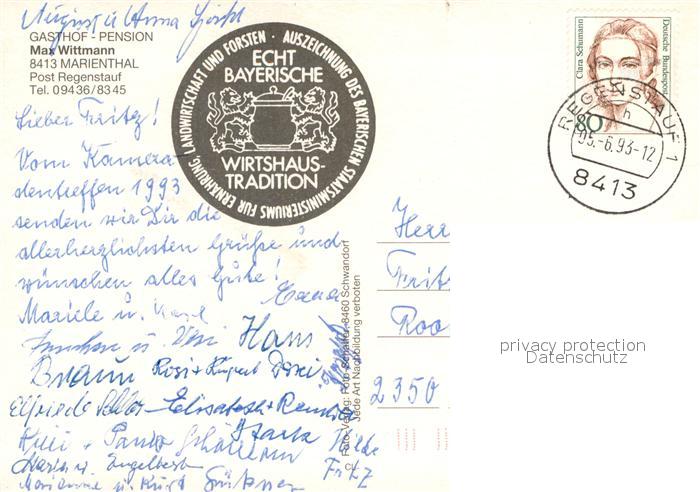 August u Anna
GASTHOF - PENSION
Max Wittmann
8413 MARIENTHAL
Post Regenstauf
Tel. 09436/8345
AUSZEICHNUNG DES BAYERISCHEN STAATSMINISTERIUMS FÜR ERNÄHRUNG, LANDWIRTSCHAFT UND FORSTEN ·
ECHT
BAYERISCHE
WIRTSHAUS-
TRADITION
Clara Schumann
Deutsche Bundespost
80
REGENSTAUF 1
h
05.-6.93-12
8413
Lieber Fritz!
Vom Kamera-
dentreffen 1993
senden wir Dir die
allerherzlichsten Grüße und
wünschen alles Gute!
Mariele u.
u. Hans
Braun Rosi + Rupert
Elfriede Elisabeth +
+
Maria u. Engelbert Hilde
Marianne u. Kurt Fritz
Foto, Verlag: Foto 8460 Schwandorf
Jede Art Nachbildung verboten
Herr
Frit
Roo
2350
privacy protection
Datenschutz